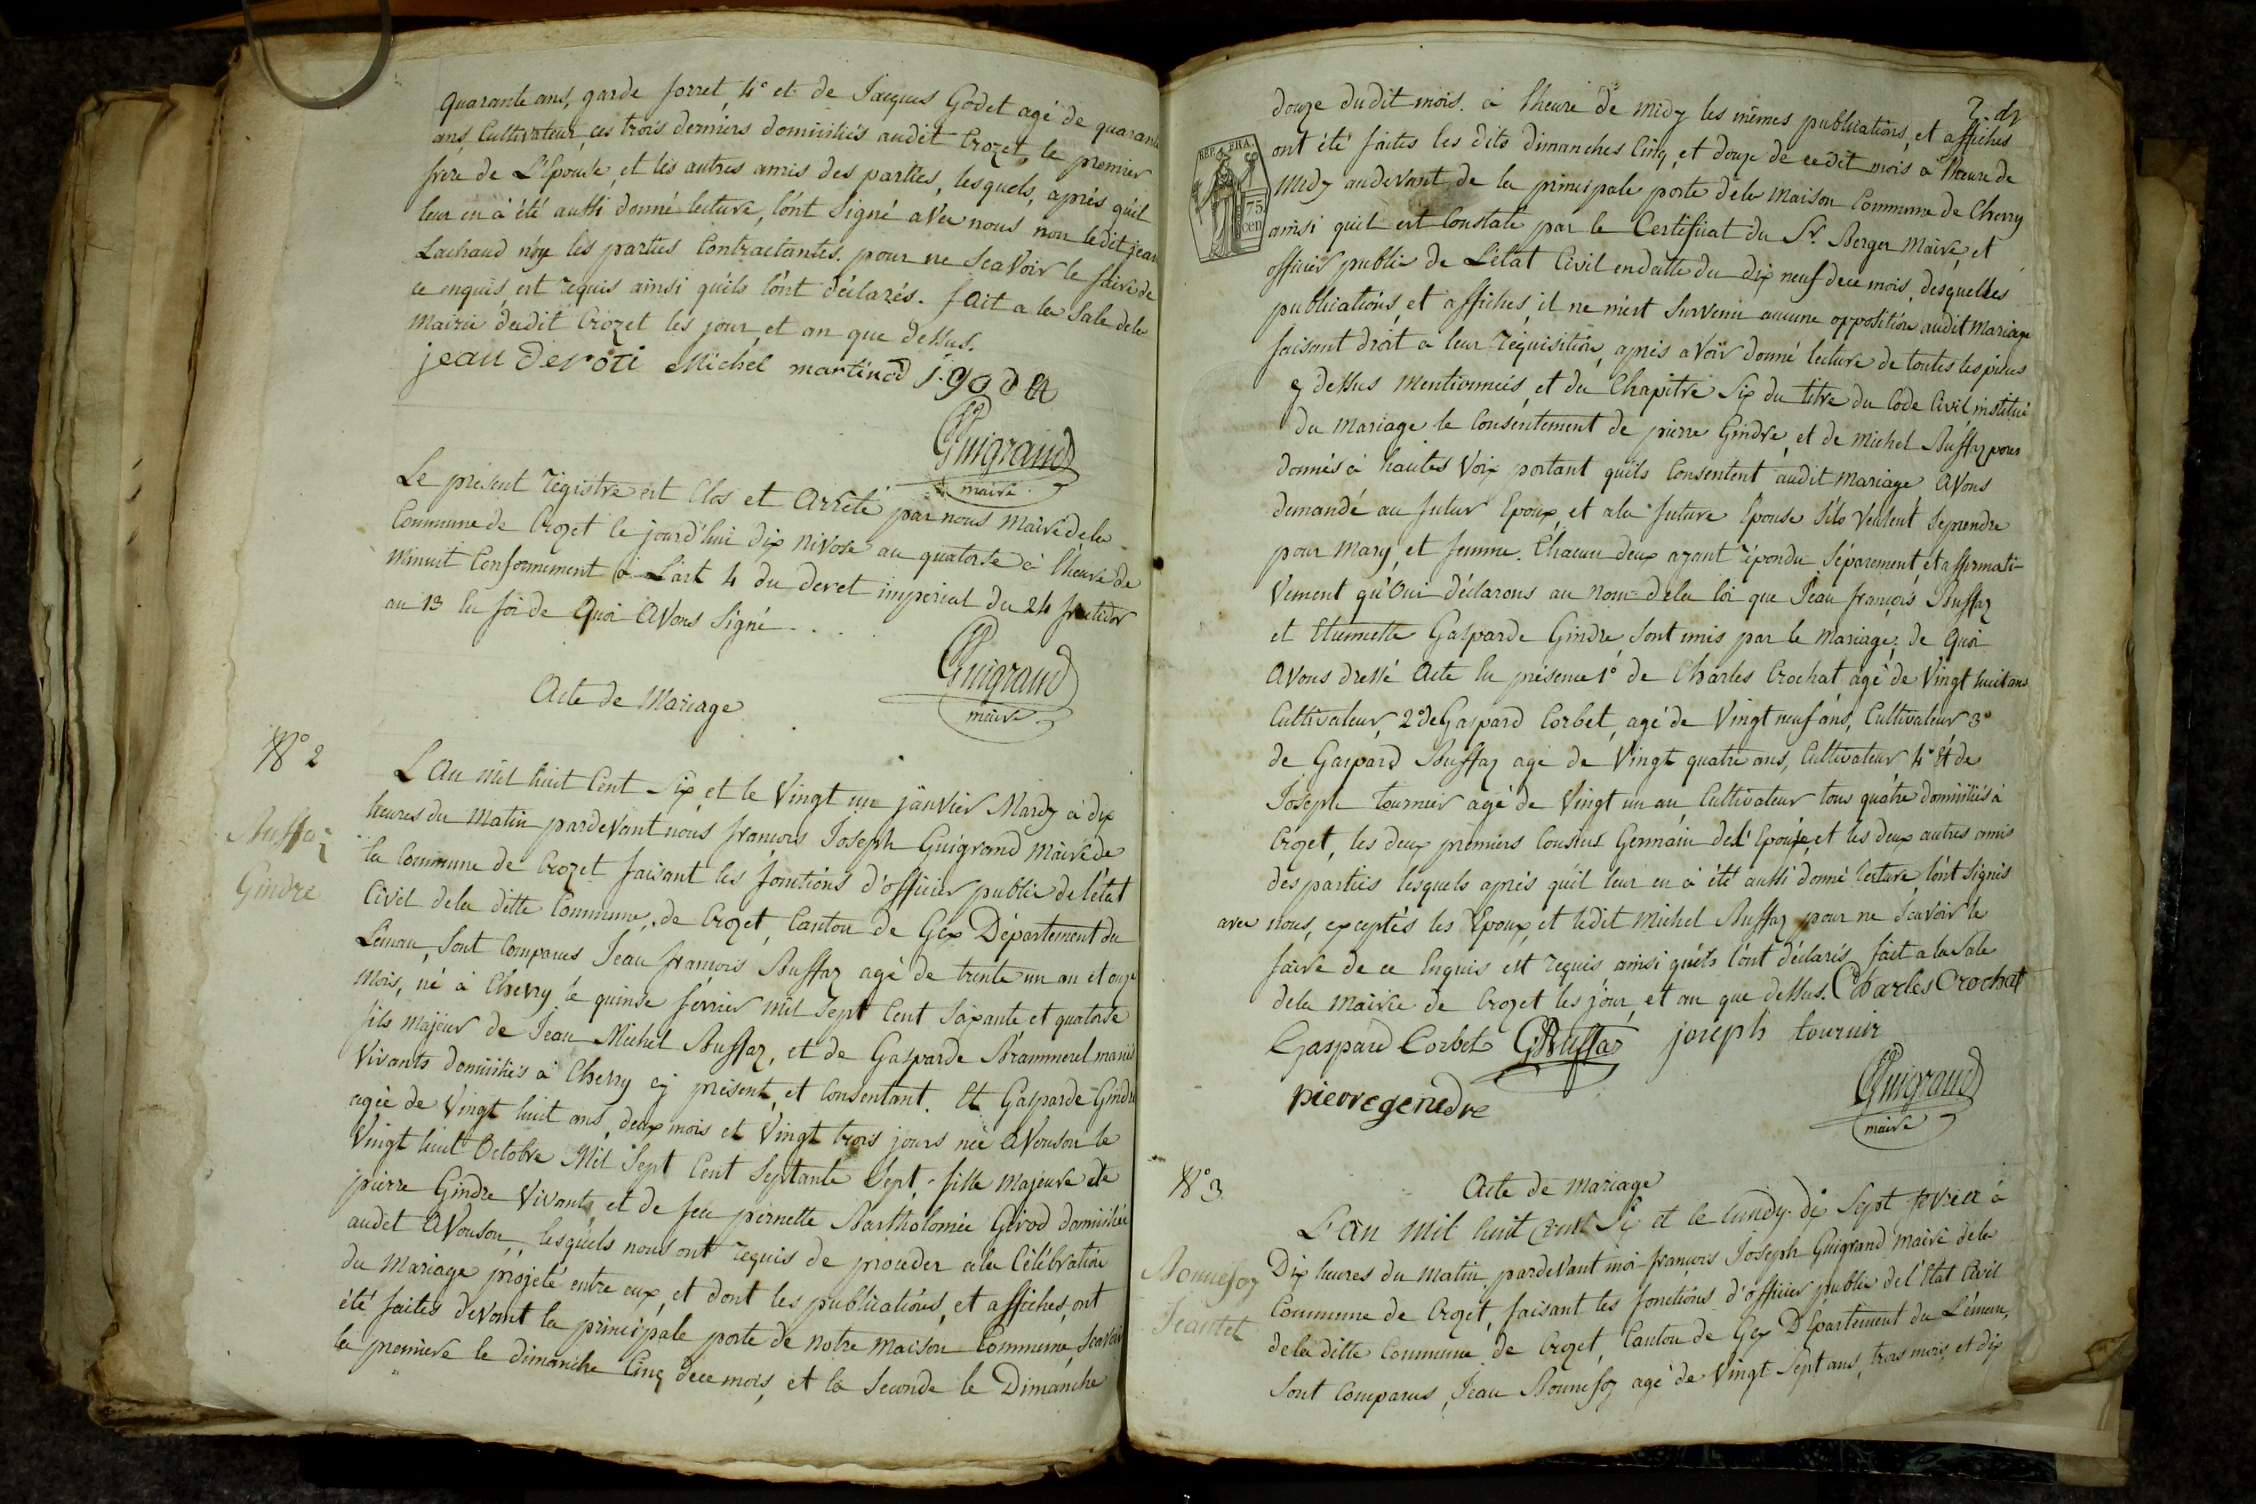 quarante ans, garde forret, 4° et de Jacques Godet agé de quarante
ans, Cultivateur, ces trois derniers domiciliés audit Crozet, le premier
frere de L'Epouse, et les autres amis des parties, lesquels, aprés quil
leur en à été aussi donné lecture, l'ont signé avec nous non ledit jean
Lachaud n'y les parties Contractantes, pour ne scavoir le faire de
ce enquis, est requis ainsi quéls l'ônt déclarés. fait a la Sale dela
Mairie dudit Crozet les jour, et an que dessus.
jean deroti Michel martinod J. godet
Guigrand
maire
Le présent régistre est Clos et Arrêté par nous Maire dela
Commune de Crozet le jourd'hui dix Nivose an quatorse à l'heure de
Minuit Conformement à L'art 4 du decret impérial du 24 fructidor
an 13 En foi de quoi Avons Signé . . .
Guigrand
maire
Acte de Mariage
N° 2
Buffaz
Gindre
L'An mil huit Cent Six et le Vingt un janvier Mardy à dix
heures du Matin pardevant nous françois Joseph Guigrand Maire de
la Commune de Crozet faisant les fonctions d'officier public de l'état
Civil dela ditte Commune, de Crozet, Canton de Gex Département du
Léman, Sont Comparus Jean françois Buffaz agé de trente un an et onze
Mois, né à Chevry le quinse février mil Sept Cent Soixante et quatorse
fils majeur de Jean Michel Buffaz, et de Gasparde Brammerel mariés
Vivants domiciliés à Chevry cy présent, et Consentant. Et Gasparde Gindre
agée de Vingt huit ans, deux mois et Vingt trois jours née à Avouson le
Vingt huit Octobre Mil Sept Cent Septante Sept, fille Majeure de
pierre Gindre Vivant, et de feu pernette Bartholomée Girod domiciliée
audit Avouson, lesquels nous ont requis de proceder ala Célébration
du Mariage projeté entre eux, et dont les publications, et affiches, ont
été faites devant la principale porte de notre Maison Commune, Scavoir
la premiere le dimanche Cinq dece mois, et la Seconde le Dimanche
REP. FRA.
75
cen
douze dudit mois. à l'heure de midy les mêmes publications, et affiches
ont été faites les dits dimanches Cinq, et douze de cedit mois à l'heure de
Midy audevant de la principale porte dela Maison Commune de Chevry
ainsi quil est Constaté par le Certificat du Sr. Berger Maire, et
officier public de L'état Civil en datte du dix neuf dece mois, desquelles
publications, et affiches, il ne m'est Survenu aucune opposition audit Mariage
faisant droit a leur réquisition, aprés avoir donné lecture de toutes les pieces
cy dessus Mentionnées, et du Chapitre Six du titre du Code Civil institué
du Mariage le Consentement de pierre Gindre, et de Michel Buffaz pour
donnés à hautes Voix portant quils Consentent audit Mariage Avons
demandé au futur Epoux, et ala future Epouse S'ils veulent Seprendre
pour Mary, et femme. Chacun deux ayant répondu Séparement, et affirmati-
Vement qu'Oui déclarons au Nom dela loi que Jean françois Buffaz
et Etiennette Gasparde Gindre Sont unis par le Mariage; de quoi
Avons dressé Acte En présence 1° de Charles Crochat agé de Vingt huit ans
Cultivateur, 2° de Gaspard Corbet, agé de Vingt neuf ans, Cultivateur 3°
de Gaspard Buffaz agé de Vingt quatre ans, Cultivateur 4° Et de
Joseph tournier agé de Vingt un an, Cultivateur tous quatre domiciliés à
Crozet, les deux premiers Cousins Germain del'Epouse, et les deux autres amis
des parties lesquels aprés quil leur en à été aussi donné lecture, l'ont signés
avec nous, exceptés les Epoux, et ledit Michel Buffaz pour ne Scavoir le
faire de ce Enquis est requis ainsi quéls l'ont déclarés fait a la Sale
dela Mairie de Crozet les jour, et an que dessus. Charles Crochat
Gaspard Corbet G Buffaz joseph tournir
pierre genedre
Guigrand
maire
N° 3
Acte de mariage
Bonnefoy
Jeantet
L'an Mil huit Cent Six et le lundy dix Sept fevrier à
Dix heures du Matin pardevant moi françois Joseph Guigrand Maire dela
Commune de Crozet, faisant les fonctions d'officier public de l'Etat Civil
dela ditte Commune de Crozet, Canton de Gex Département du Léman,
Sont Comparus, Jean Bonnefoy agé de Vingt Sept ans, trois mois, et dix